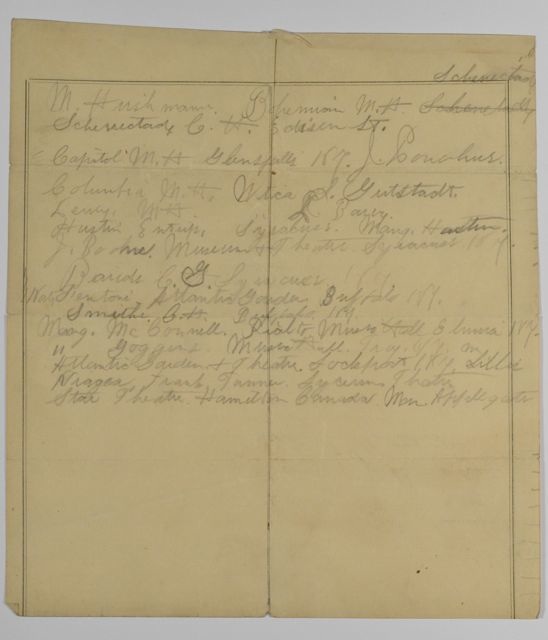 Schenectady
M. Hershmann. Bohemian M. H. Schenectady
Schenectady C. H. Edison St.
Capitol M. H. Glensfalls 189. J. Donohus.
Columbia M. H. Utica S. Gutstadt.
Lewy. M H. L. Barry
Hustin Syracuse. Mang. Hustin.
J. Boone. Museum & Theatre. Syracuse 189.
C. G. Syracuse 189
Nat Fenton. Atlantic Garden, Buffalo 189.
Smith C. H. Buffalo. 189.
Mang. McConnell. Rialto Music Hall Elmira 189.
" Goggins. Music Hall. Troy. N.Y.
Atlantic Garden & Theatre Lockport, 189,
Niagra. Frank, Tanner. Lyceum Theatre
Star Theatre. Hamilton Canada Man Applegate